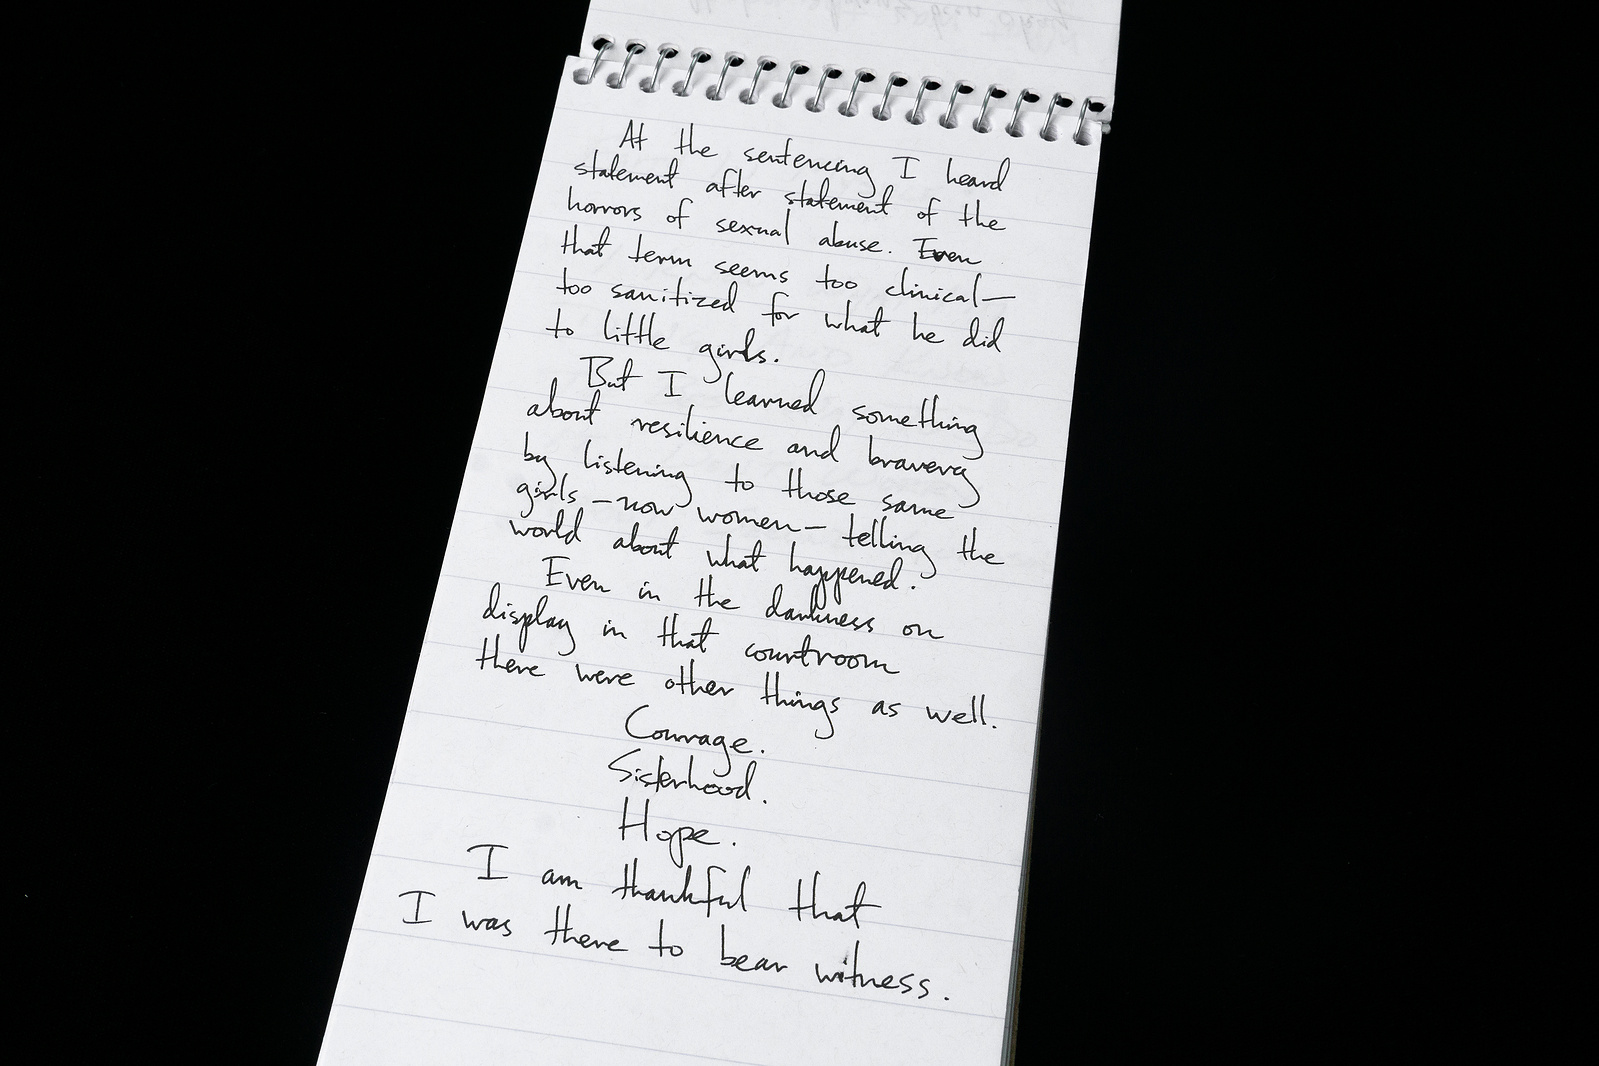 At the sentencing I heard
statement after statement of the
horrors of sexual abuse. Even
that term seems too clinical—
too sanitized for what he did
to little girls.
But I learned something
about resilience and bravery
by listening to those same
girls—now women—telling the
world about what happened.
Even in the darkness on
display in that courtroom
there were other things as well.
Courage.
Sisterhood.
Hope.
I am thankful that
I was there to bear witness.